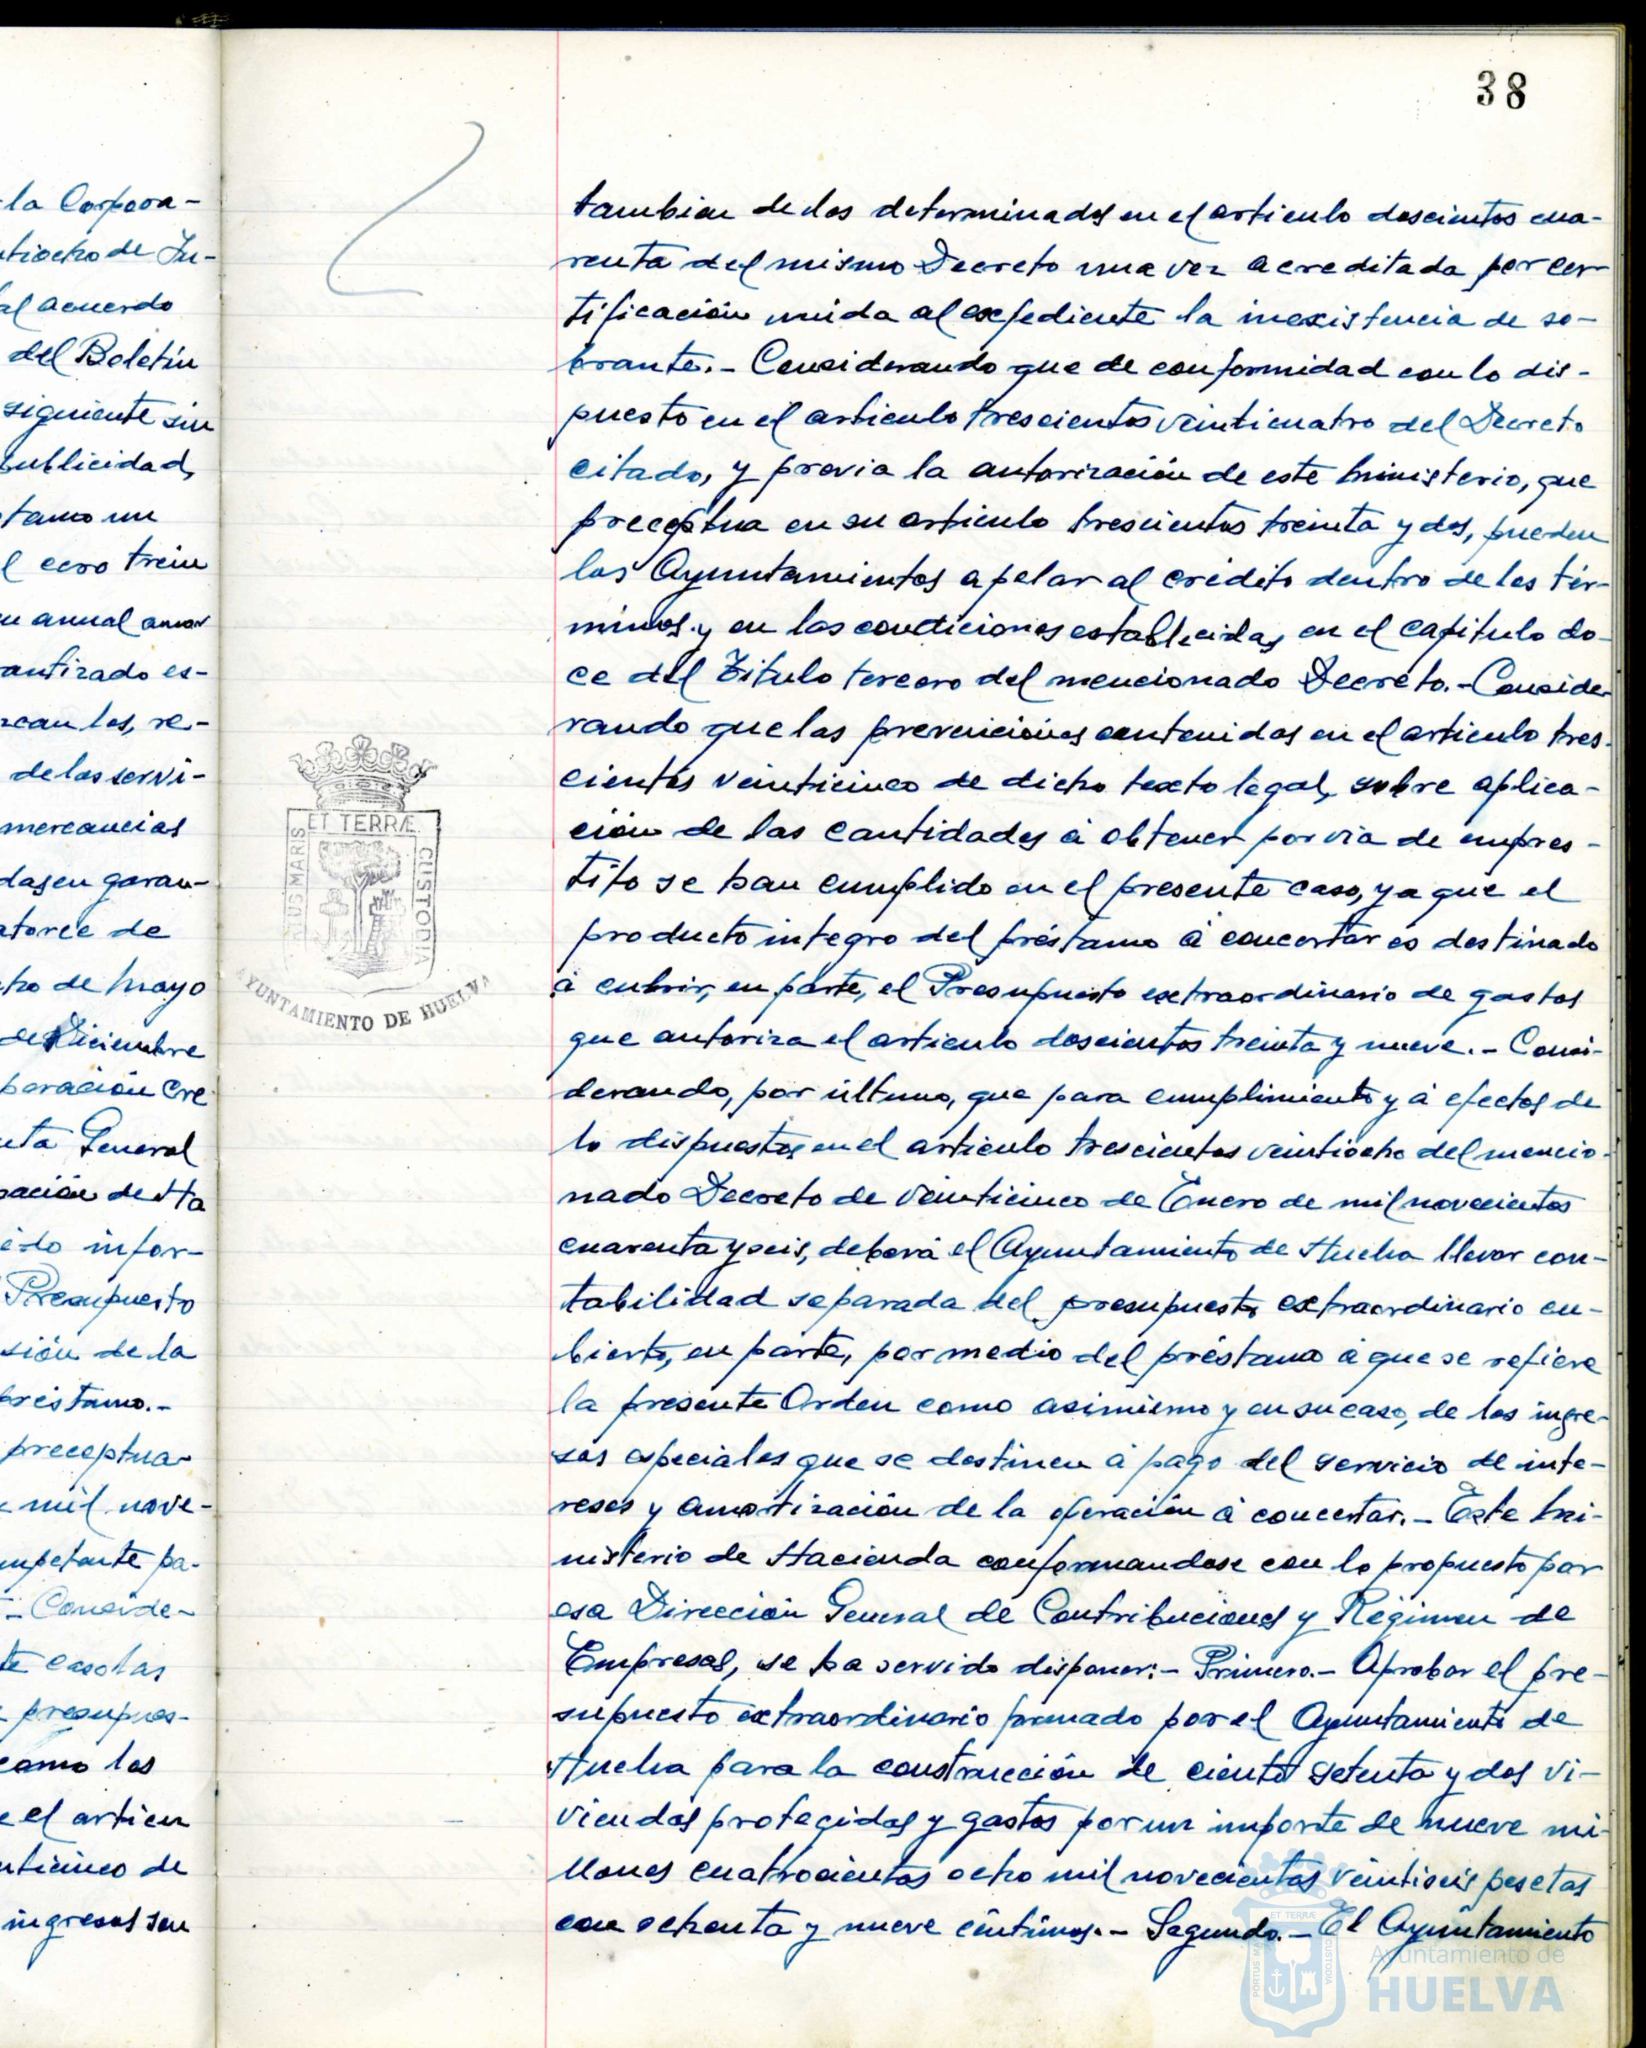 38
la Corpora-
ntiocho de Ju-
al acuerdo
del Boletín
siguiente sin
publicidad,
stamo un
l cero trein
n anual amor
antizado es-
zcan los, re-
de los servi-
mercancias
das en garan-
atorce de
cho de Mayo
de Diciembre
poración cre
nta General
pación de Ha
ido infor-
Presupuesto
sión de la
préstamo.-
preceptua-
mil nove-
mpetente pa-
- Conside-
te caso las
presupues-
como los
e el articu
nticinco de
ingresos son
tambien de los determinados en el articulo doscientos cua-
renta del mismo Decreto una vez acreditada por cer-
tificación unida al expediente la inexistencia de so-
brante.- Considerando que de conformidad con lo dis-
puesto en el articulo trescientos veinticuatro del Decreto
citado, y previa la autorización de este Ministerio, que
preceptua en su articulo trescientos treinta y dos, pueden
los Ayuntamientos apelar al crédito dentro de los tér-
minos y en las condiciones establecidas en el capitulo do-
ce del Titulo tercero del mencionado Decreto.- Conside-
rando que las prevenciones contenidas en el articulo tres-
cientos veinticinco de dicho texto legal, sobre aplica-
ción de las cantidades á obtener por via de empres-
tito se han cumplido en el presente caso, ya que el
producto integro del préstamo á concertar es destinado
á cubrir, en parte, el Presupuesto extraordinario de gastos
que autoriza el articulo doscientos treinta y nueve.- Consi-
derando, por último, que para cumplimiento y á efectos de
lo dispuesto en el articulo trescientos veintiocho del mencio-
nado Decreto de veinticinco de Enero de mil novecientos
cuarenta y seis, deberá el Ayuntamiento de Huelva llevar con-
tabilidad separada del presupuesto extraordinario cu-
bierto, en parte, por medio del préstamo á que se refiere
la presente Orden como asimismo y en su caso, de los ingre-
sos especiales que se destinen á pago del servicio de inte-
reses y amortización de la operación á concertar.- Este Mi-
nisterio de Hacienda conformandose con lo propuesto por
esa Dirección General de Contribuciones y Régimen de
Empresas, se ha servido disponer:- Primero.- Aprobar el pre-
supuesto extraordinario formado por el Ayuntamiento de
Huelva para la construcción de ciento setenta y dos vi-
viendas protegidas y gastos por un importe de nueve mi-
llones cuatrocientos ocho mil novecientas veintiseis pesetas
con ochenta y nueve céntimos.- Segundo.- El Ayuntamiento
PORTUS MARIS ET TERRÆ CUSTODIA
AYUNTAMIENTO DE HUELVA
PORTUS MARIS ET TERRÆ CUSTODIA
Ayuntamiento de
HUELVA